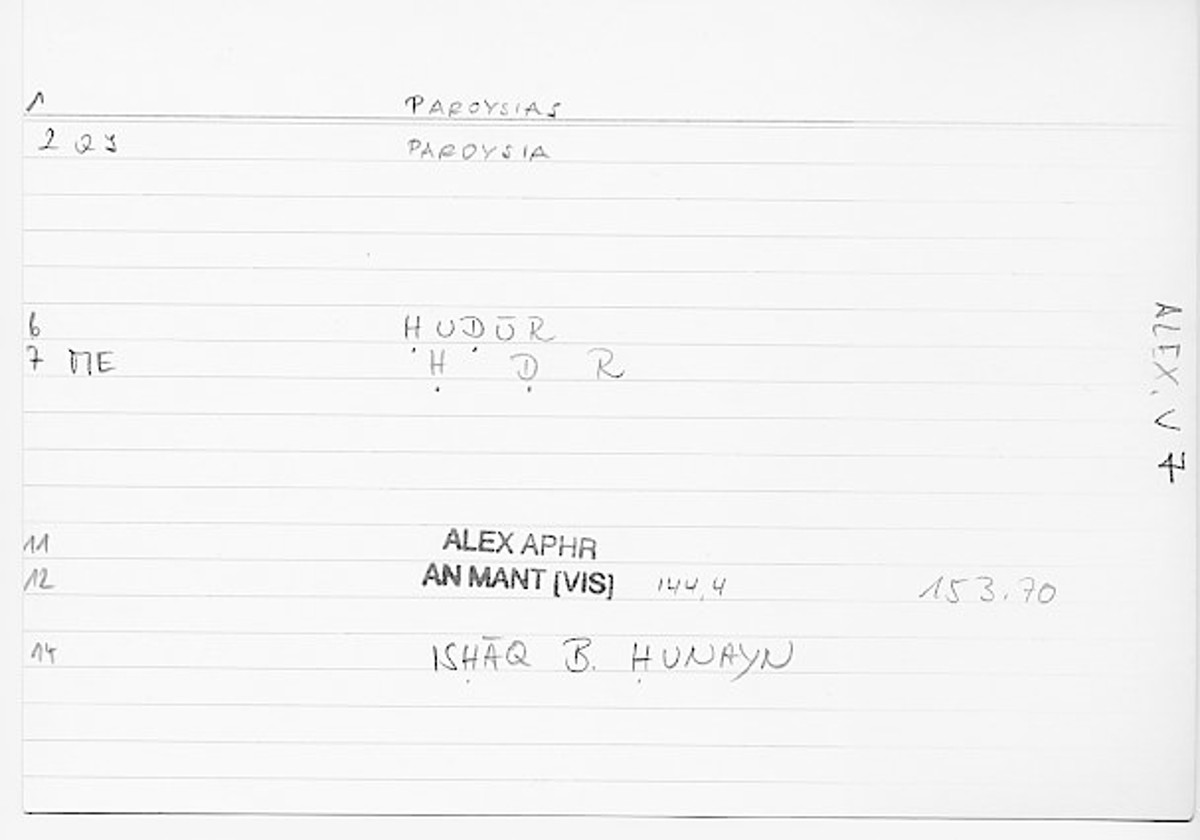 1 PAROYSIAS
2 QY PAROYSIA
6 ḤUḌŪR
7 ME Ḥ Ḍ R
11 ALEX APHR
12 AN MANT [VIS] 144,4 153.70
14 ISḤĀQ B. ḤUNAYN
ALEX. V 4